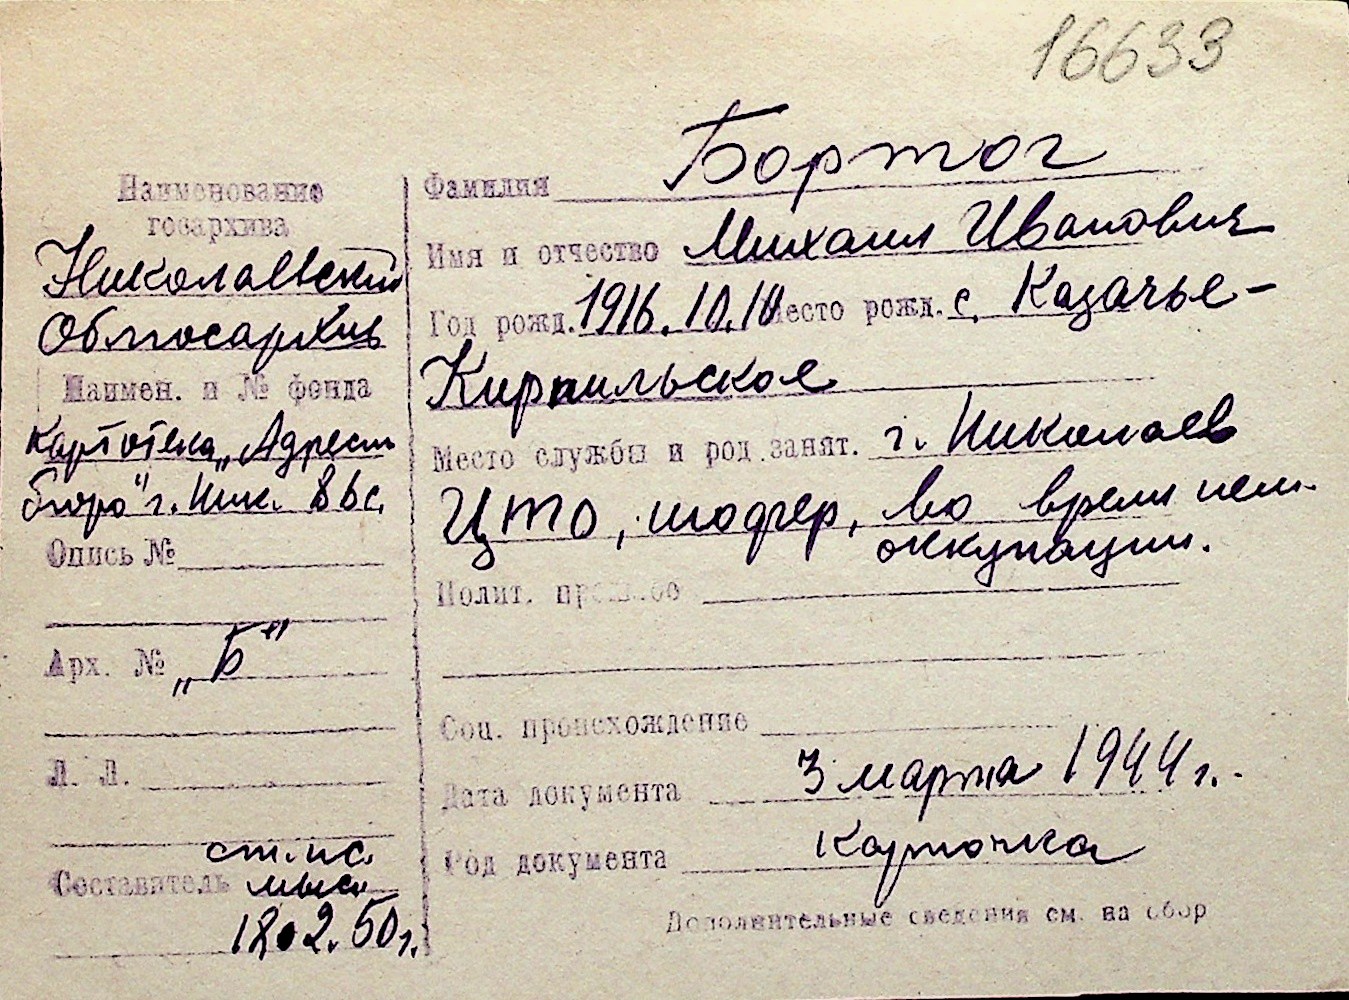 16633
Наименование
госархива
Николаевский
Облгосархив
Наимен. и № фонда
Картотека „Адресн
бюро" г. Ник.
Опись №
Арх. № „Б"
Л. Л.
ст. н.с.
Составитель
18.2.50 г.
Фамилия Бортог
Имя и отчество Михаил Иванович
Год рожд. 1916.10.10 Место рожд. с. Казачье-
Кирпильское
Место службы и род занят. г. Николаев
ЦТО, шофер, во время нем.
оккупации.
Полит. прошлое
Соц. происхождение
Дата документа 3 марта 1944 г.
Род документа Карточка
Дополнительные сведения см. на обор